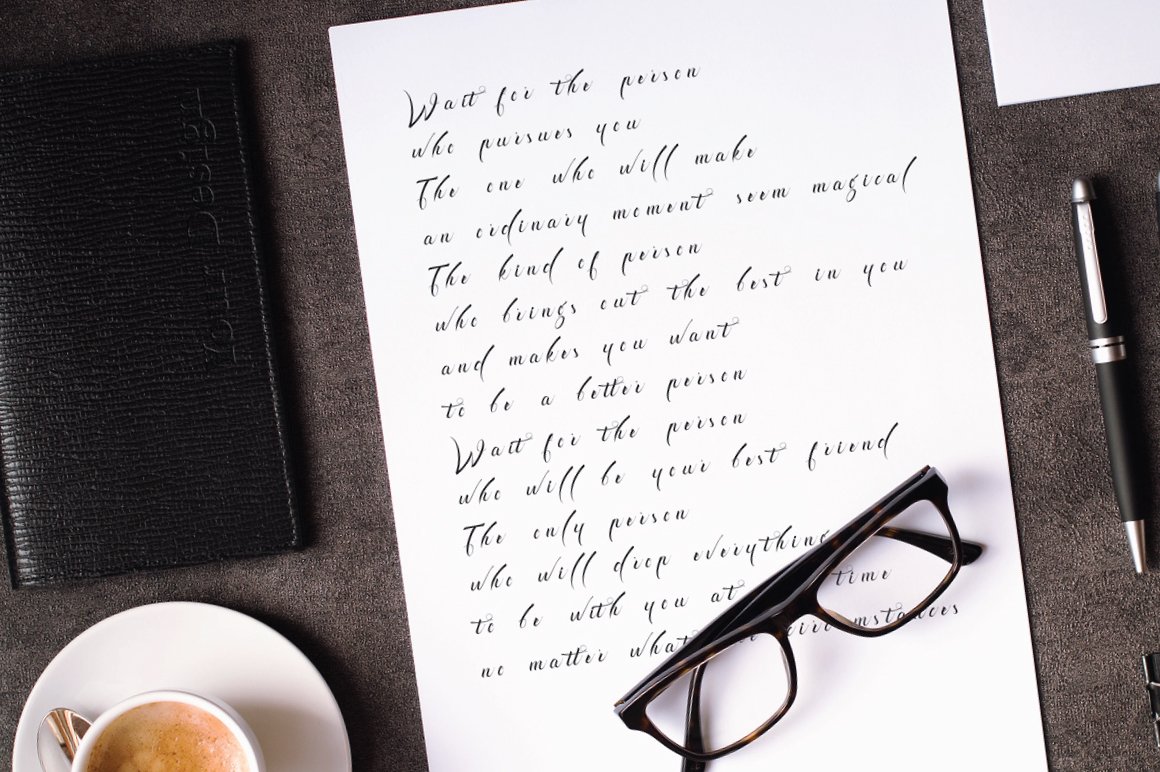 Wait for the person
who pursues you
The one who will make
an ordinary moment seem magical
The kind of person
who brings out the best in you
and makes you want
to be a better person
Wait for the person
who will be your best friend
The only person
who will drop everything
to be with you at time
no matter what circumstances